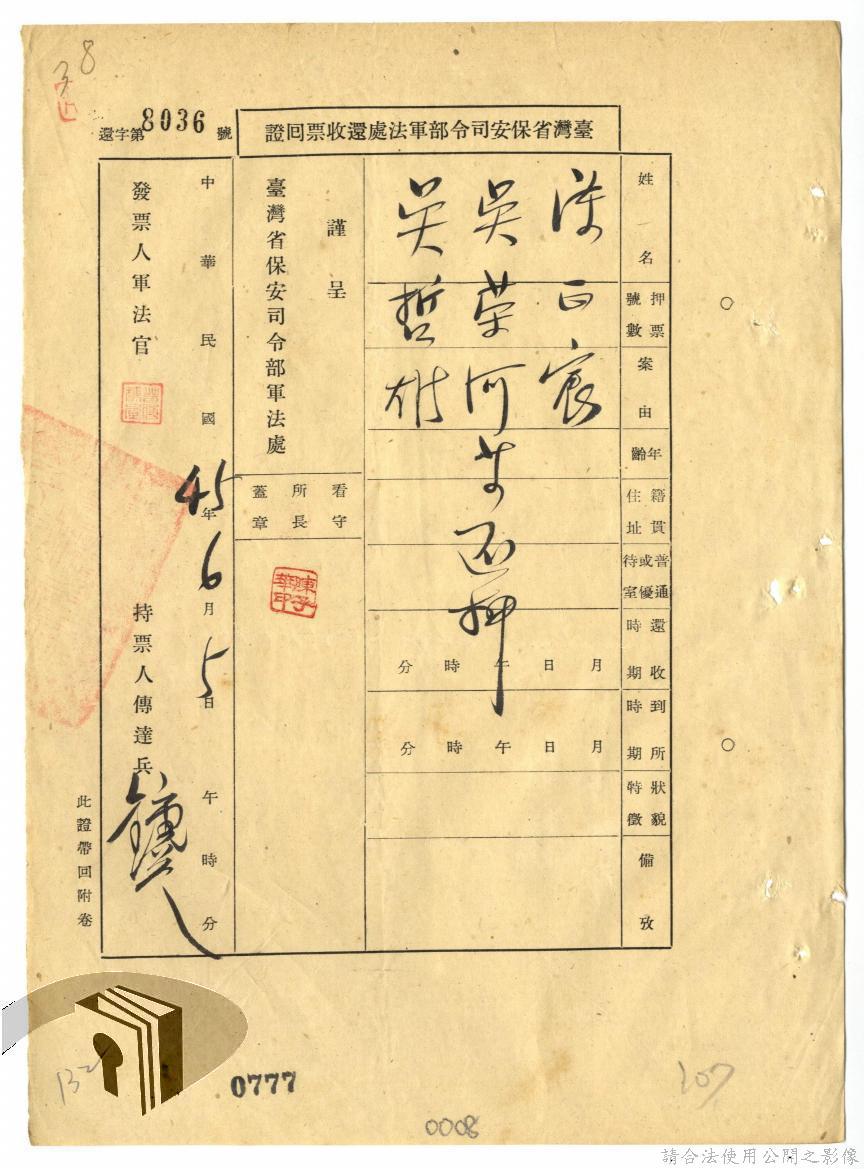 38
還字第8036號
臺灣省保安司令部軍法處還收票回證
姓名
押票號數
案由
年齡
籍貫住址
普通或優待室
還收時期
到所時期
狀貌特徵
備攷
正宸
吳榮河等還押
吳哲雄
月日午時分
月日午時分
謹呈
臺灣省保安司令部軍法處
看守所長蓋章
陳子華印
中華民國45年6月5日午時分
發票人軍法官
持票人傳達兵
此證帶回附卷
132
0777
0008
107
請合法使用公開之影像